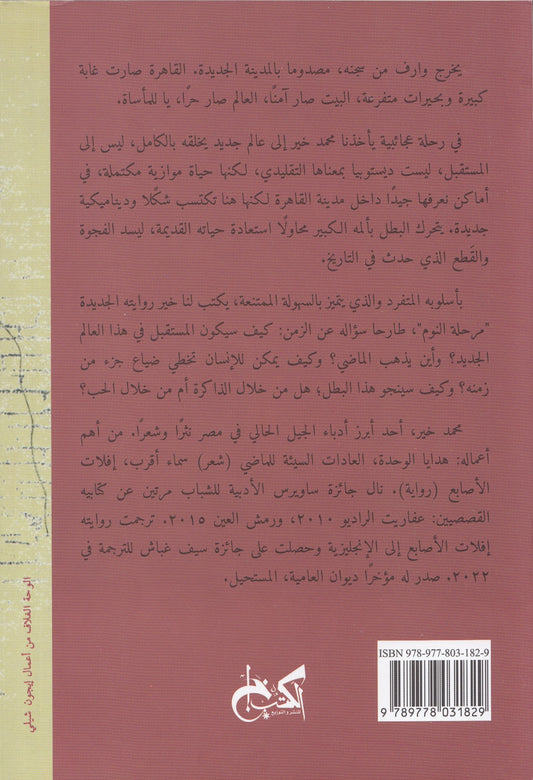 يخرج وارف من سجنه، مصدوما بالمدينة الجديدة. القاهرة صارت غابة
كبيرة وبحيرات متفرعة، البيت صار آمنًا، العالم صار حرًا، يا للمأساة.
في رحلة عجائبية يأخذنا محمد خير إلى عالم جديد يخلقه بالكامل، ليس إلى
المستقبل، ليست ديستوبيا بمعناها التقليدي، لكنها حياة موازية مكتملة، في
أماكن نعرفها جيدًا داخل مدينة القاهرة لكنها هنا تكتسب شكلًا وديناميكية
جديدة. يتحرك البطل بألمه الكبير محاولًا استعادة حياته القديمة، ليسد الفجوة
والقَطع الذي حدث في التاريخ.
بأسلوبه المتفرد والذي يتميز بالسهولة الممتنعة، يكتب لنا خير روايته الجديدة
"مرحلة النوم"، طارحا سؤاله عن الزمن: كيف سيكون المستقبل في هذا العالم
الجديد؟ وأين يذهب الماضي؟ وكيف يمكن للإنسان تخطي ضياع جزء من
زمنه؟ وكيف سينجو هذا البطل؛ هل من خلال الذاكرة أم من خلال الحب؟
محمد خير، أحد أبرز أدباء الجيل الحالي في مصر نثرًا وشعرًا. من أهم
أعماله: هدايا الوحدة، العادات السيئة للماضي (شعر) سماء أقرب، إفلات
الأصابع (رواية). نال جائزة ساويرس الأدبية للشباب مرتين عن كتابيه
القصصيين: عفاريت الراديو ٢٠١٠، ورمش العين ٢٠١٥. ترجمت روايته
إفلات الأصابع إلى الإنجليزية وحصلت على جائزة سيف غباش للترجمة في
٢٠٢٢. صدر له مؤخرًا ديوان العامية، المستحيل.
لوحة الغلاف من أعمال إيجون شيلي
الكتب خان
للنشر والتوزيع
ISBN 978-977-803-182-9
9 789778 031829